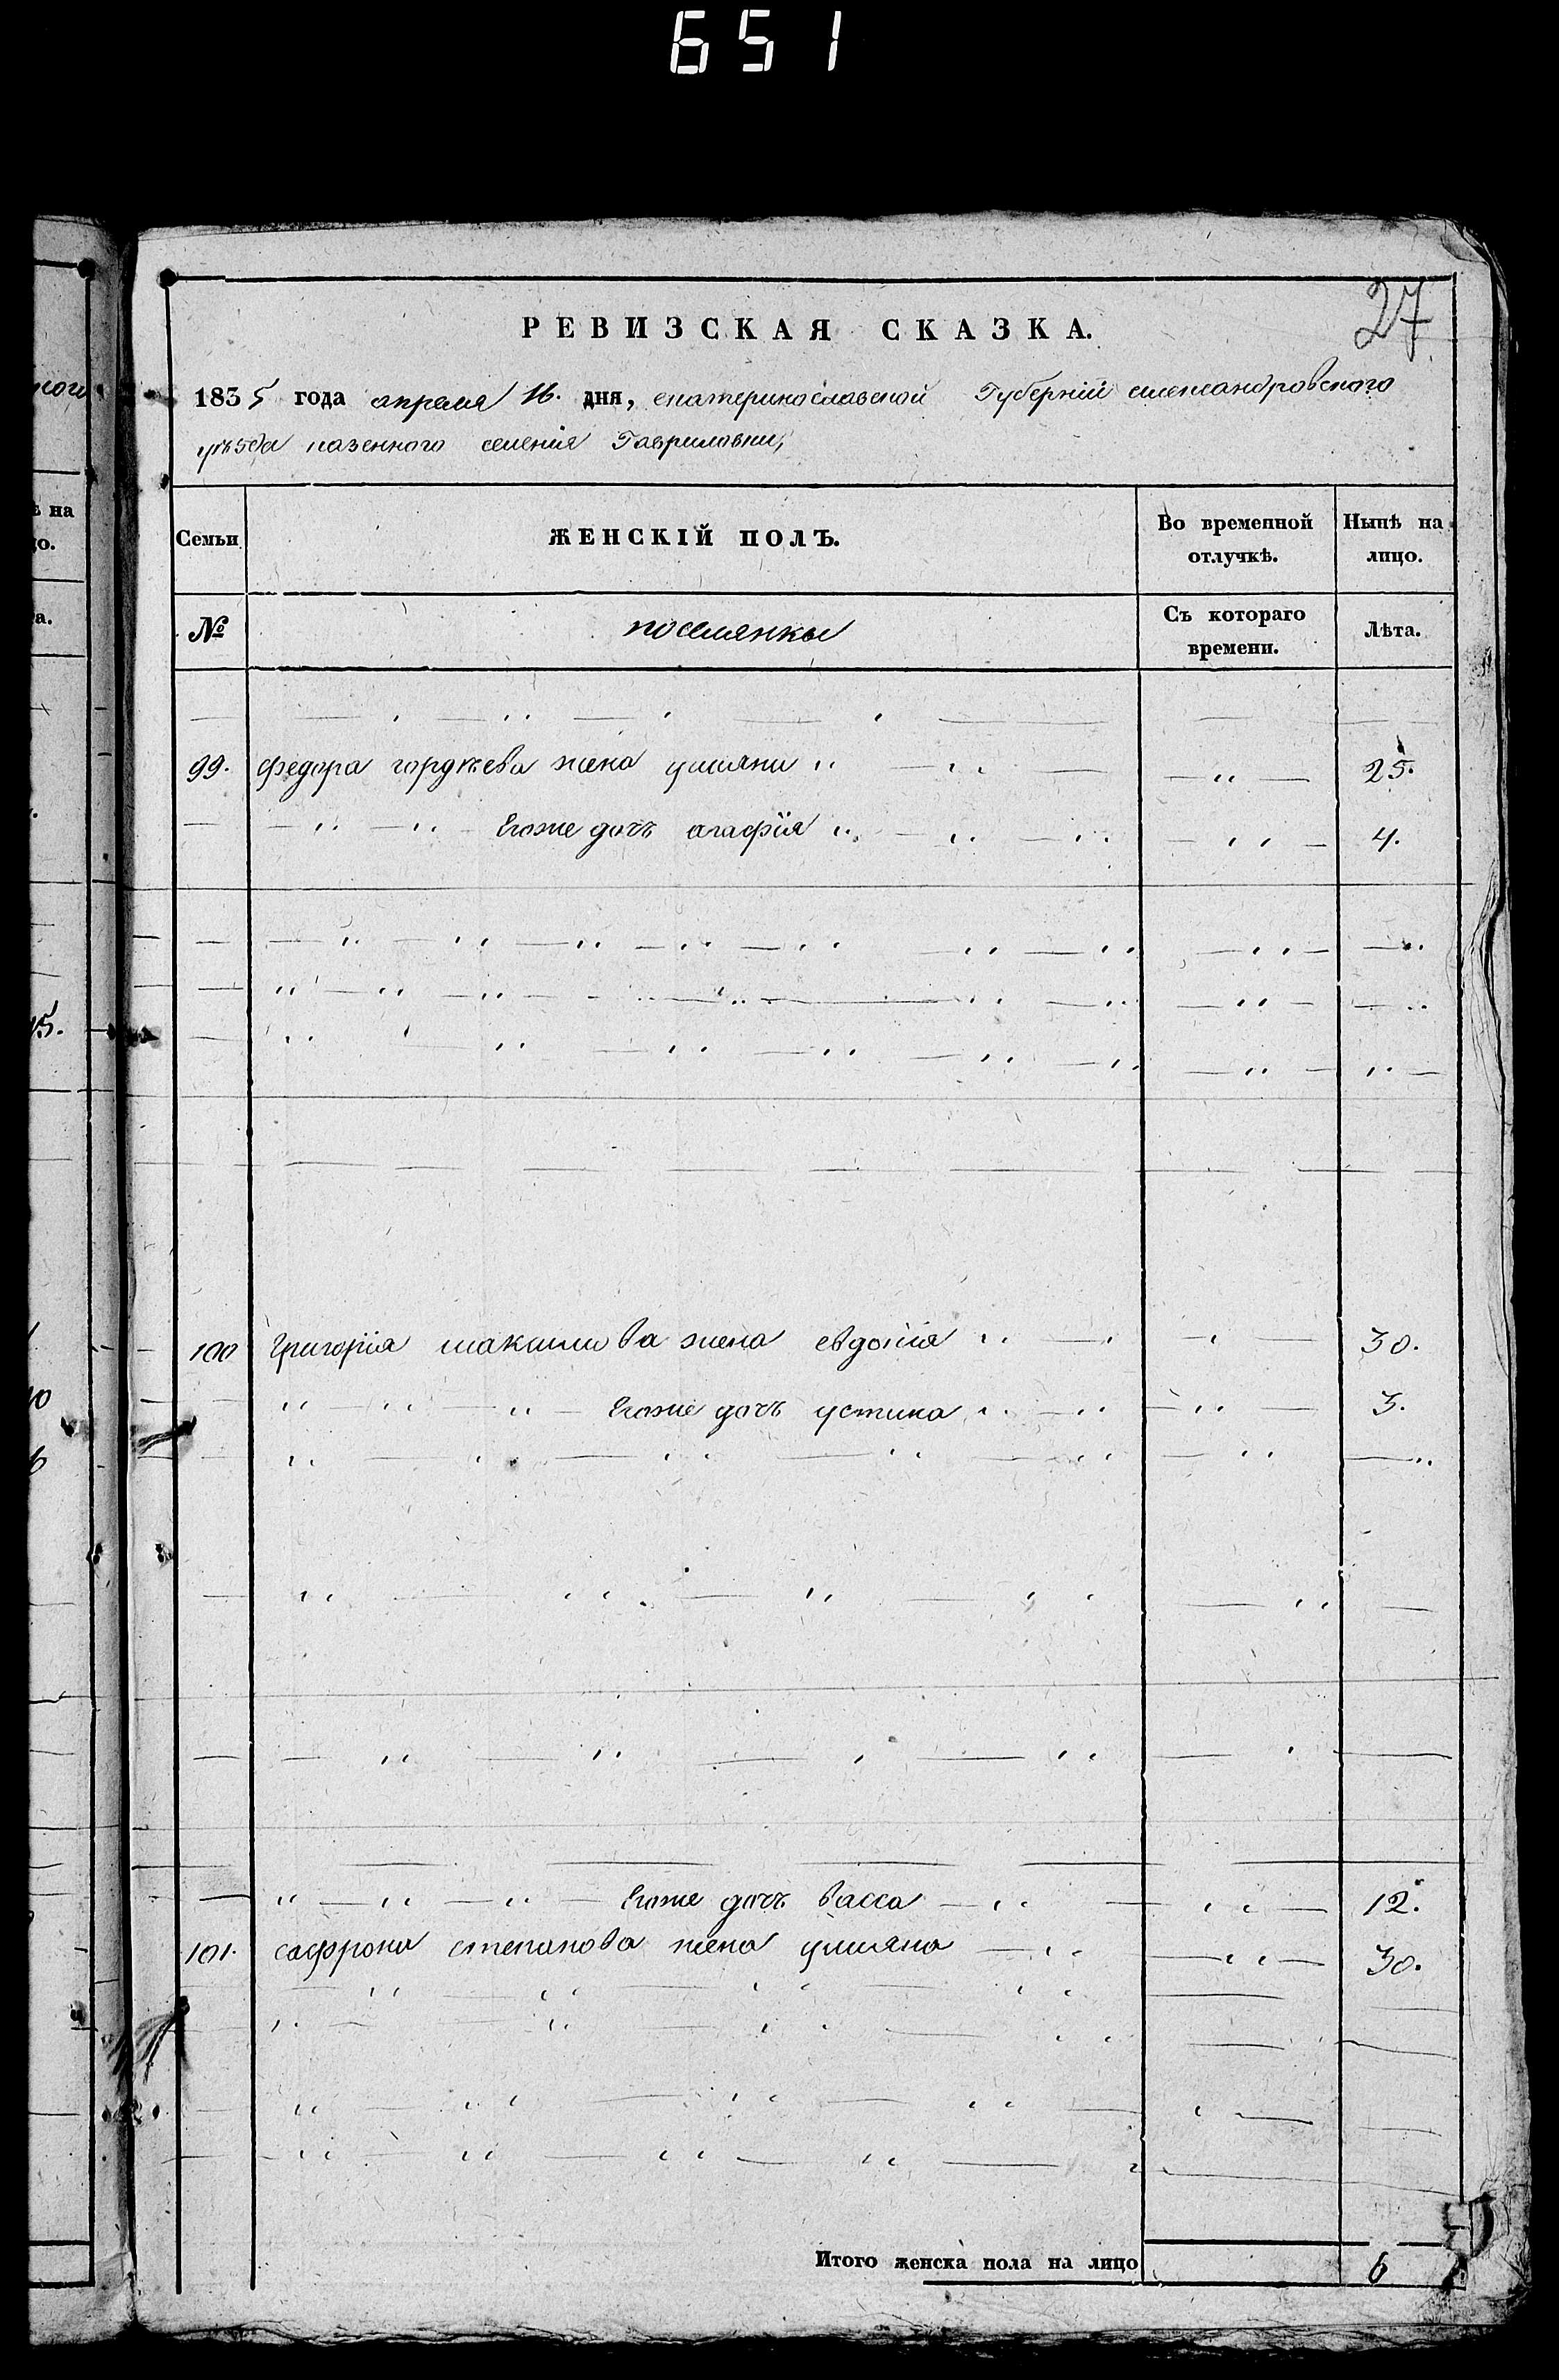 651
27
РЕВИЗСКАЯ СКАЗКА.
1835 года апреля 16. дня, екатеринославской Губерніи александровского
уѣзда казенного селенія Гавриловки,
Семьи ЖЕНСКІЙ ПОЛЪ. Во временной отлучкѣ. Нынѣ на лицо.
№ поселянки Съ котораго времени. Лѣта.
99. Федора гордѣева жена улияни 25.
Егоже дочь агафія 4.
100 Григорія максимова жена евдокія 30.
Егоже дочь устина 3.
Егоже дочь васса 12.
101. сафрона степанова жена улияна 30.
Итого женска пола на лицо 6